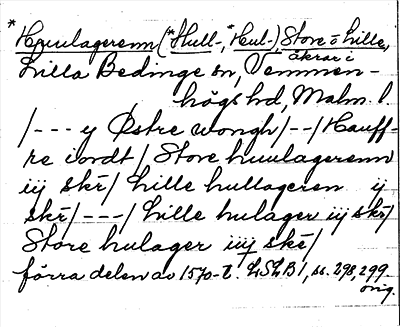 *Huulagerenn (*Hull-, *Hul-), Store o lille,
åkrar i
Lilla Bedinge sn, Vemmen-
högs hd, Malm. l.
/--- y Østre wongh/--/Hauff-
re iordt/ Store huulagerenn
iij skr/ lille hullageren ij
skr/---/ lille hulager iij skr/
Store hulager iiij skr/
förra delen av 1570-t. LSLB 1, ss. 298, 299
orig.